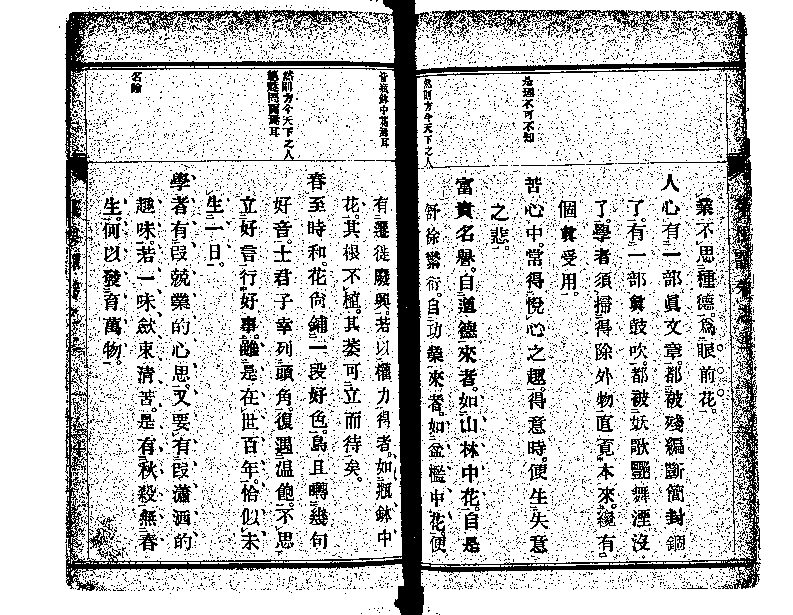 是迺不可不知
然則方今天下之人
業不思種德。為眼前花。
人心有一部眞文章。都被殘編斷簡封錮
了。有一部眞鼓吹。都被妖歌艷舞湮沒
了。學者須掃得除外物直覓本來。纔有
個眞受用。
苦心中。常得悅心之趣。得意時。便生失意
之悲。
富貴名譽。自道德來者。如山林中花。自是
舒徐繁衍。自功業來者。如盆檻中花。便
皆瓶鉢中富貴耳
然則方今天下之人
名喩
有遷徙廢興。若以權力得者。如瓶鉢中
花。其根不植。其萎可立而待矣。
春至時和。花尙鋪一段好色。鳥且囀幾句
好音。士君子幸列頭角。復遇温飽。不思
立好言行好事。雖是在世百年。恰似未
生一日。
學者有段兢業的心思。又要有段瀟洒的
趣味。若一味斂束淸苦。是有秋殺無春
生。何以發育萬物。